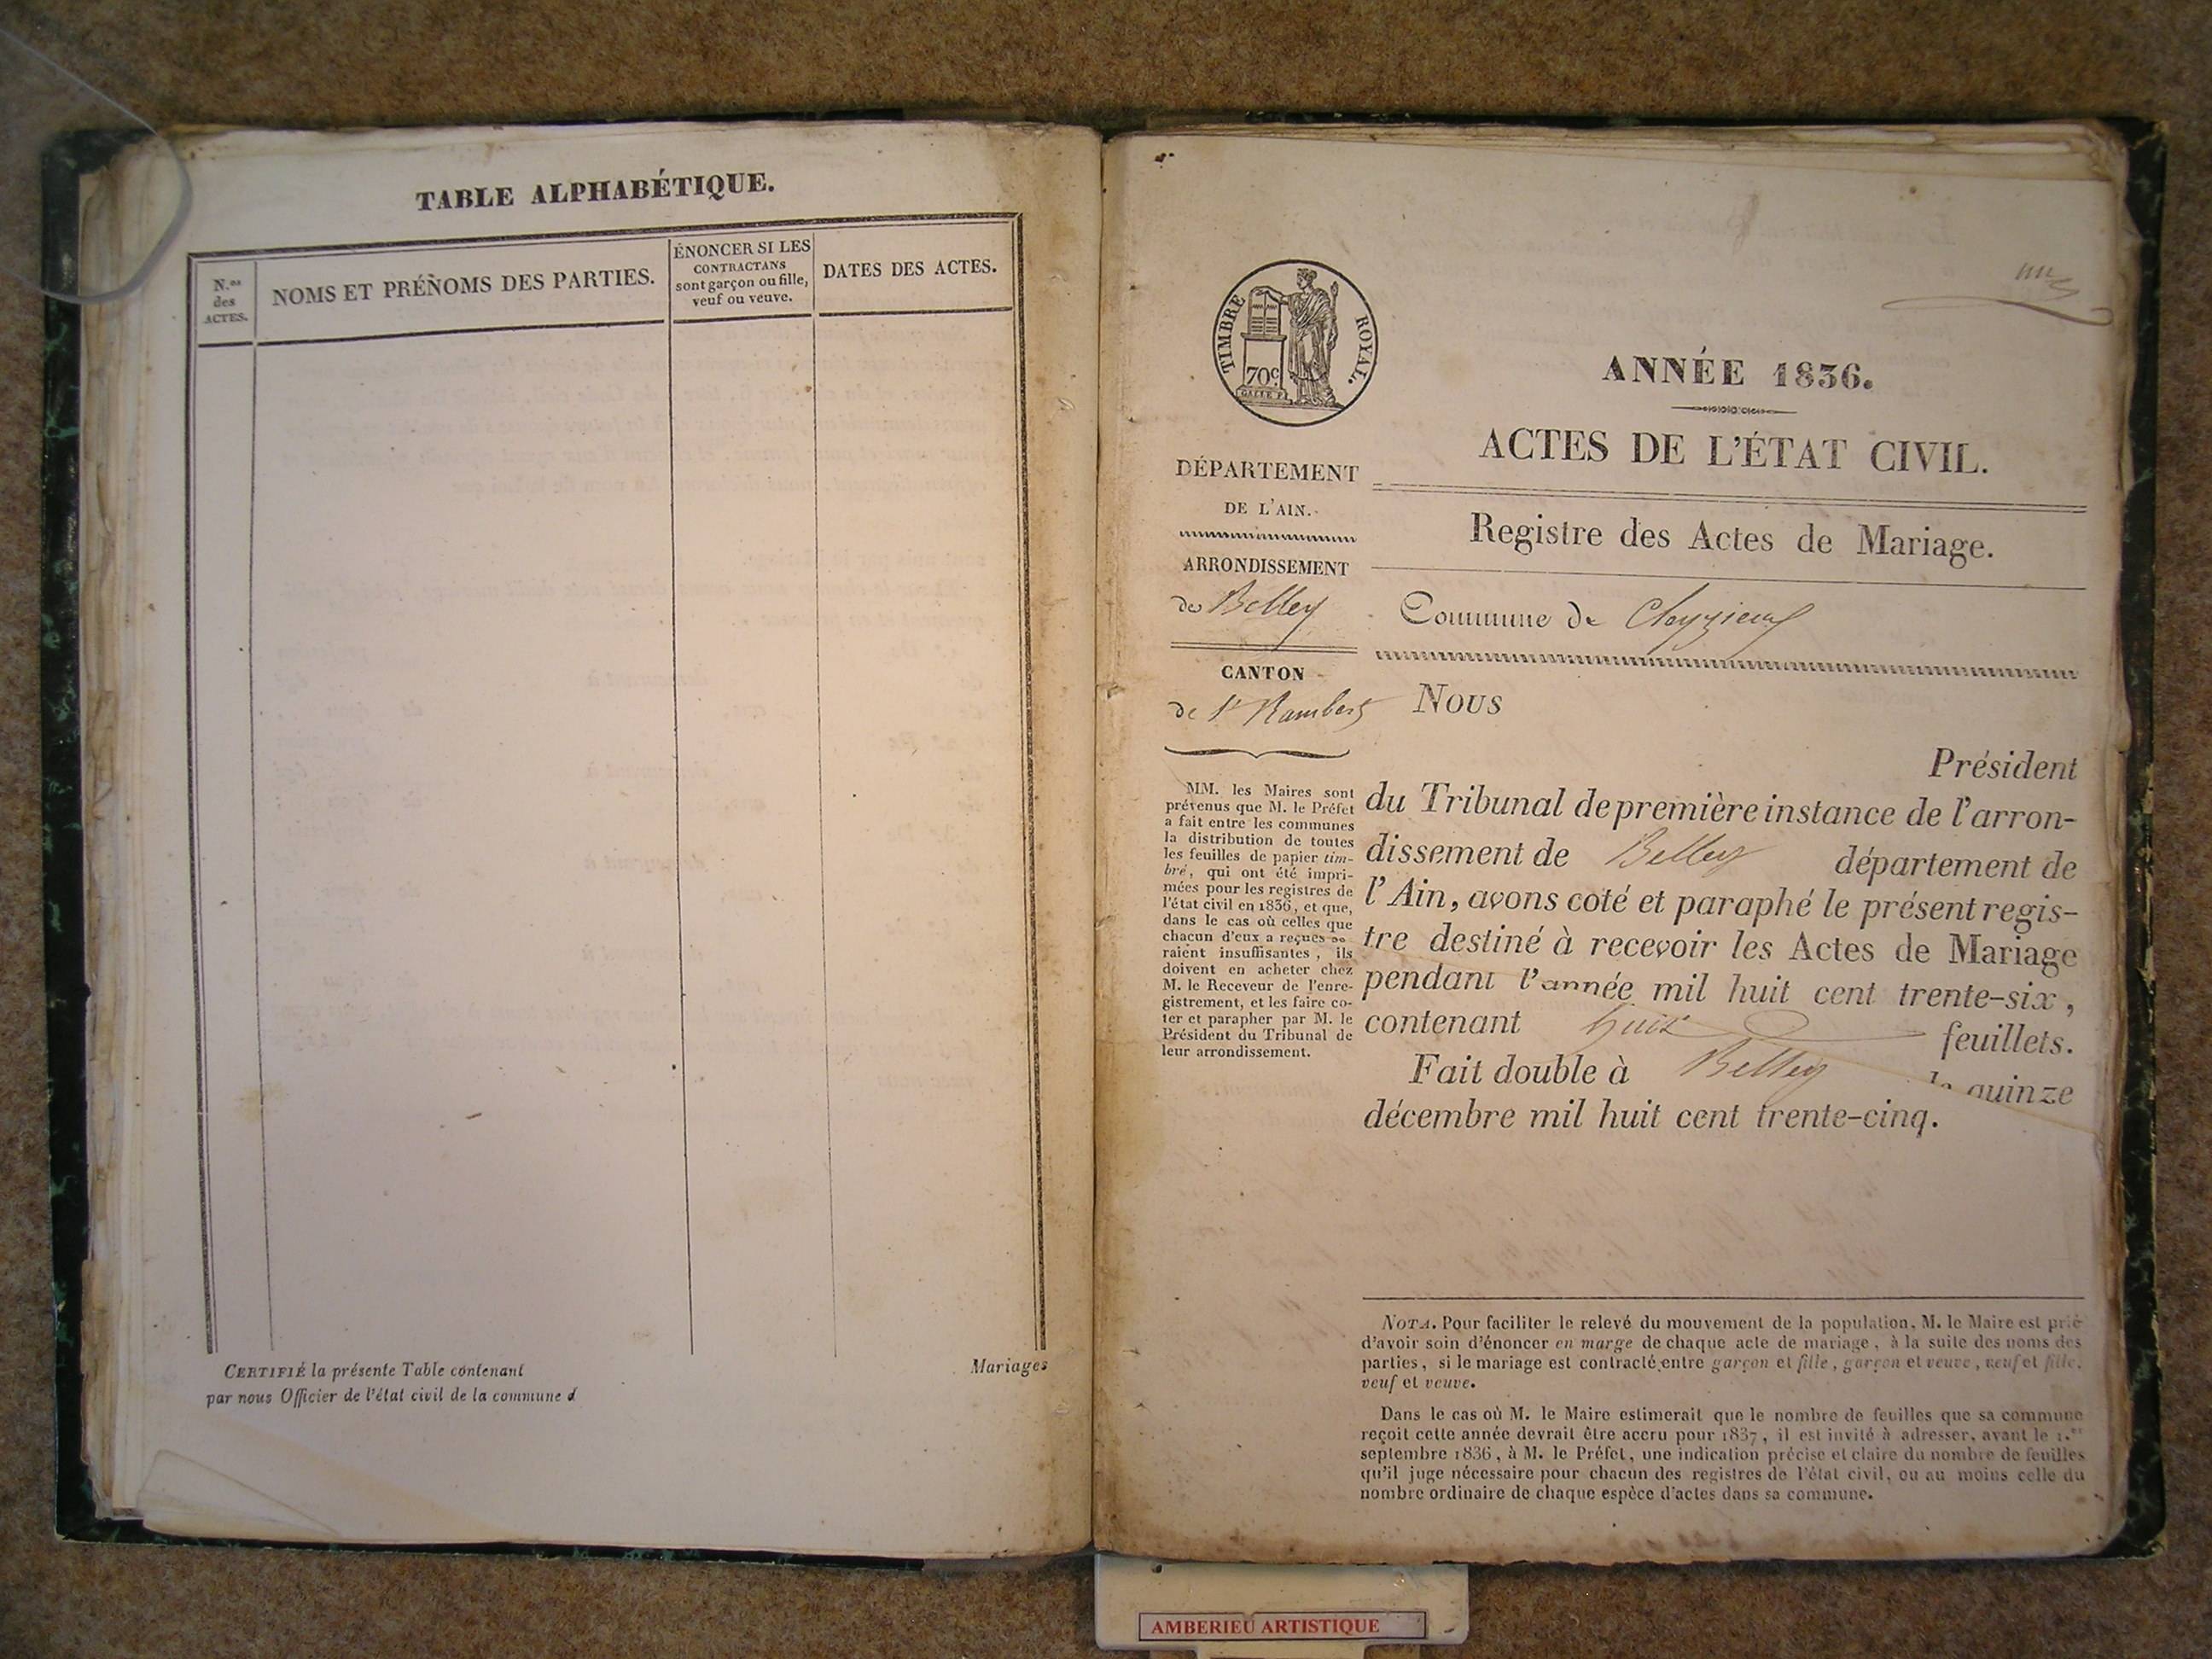 TABLE ALPHABÉTIQUE.
N.os
des
ACTES.
NOMS ET PRÉNOMS DES PARTIES.
ÉNONCER SI LES
CONTRACTANS
sont garçon ou fille,
veuf ou veuve.
DATES DES ACTES.
CERTIFIÉ la présente Table contenant Mariages
par nous Officier de l'état civil de la commune d
TIMBRE ROYAL.
70c
ANNÉE 1836.
ACTES DE L'ÉTAT CIVIL.
DÉPARTEMENT
DE L'AIN.
Registre des Actes de Mariage.
ARRONDISSEMENT
de Belley
Commune de Cleyzieu
CANTON
de St Rambert
MM. les Maires sont
prévenus que M. le Préfet
a fait entre les communes
la distribution de toutes
les feuilles de papier tim-
bré, qui ont été impri-
mées pour les registres de
l'état civil en 1836, et que,
dans le cas où celles que
chacun d'eux a reçues se-
raient insuffisantes, ils
doivent en acheter chez
M. le Receveur de l'enre-
gistrement, et les faire co-
ter et parapher par M. le
Président du Tribunal de
leur arrondissement.
Nous
Président
du Tribunal de première instance de l'arron-
dissement de Belley département de
l'Ain, avons coté et paraphé le présent regis-
tre destiné à recevoir les Actes de Mariage
pendant l'année mil huit cent trente-six,
contenant huit feuillets.
Fait double à Belley le quinze
décembre mil huit cent trente-cinq.
NOTA. Pour faciliter le relevé du mouvement de la population, M. le Maire est prié
d'avoir soin d'énoncer en marge de chaque acte de mariage, à la suite des noms des
parties, si le mariage est contracté entre garçon et fille, garçon et veuve, veuf et fille,
veuf et veuve.
Dans le cas où M. le Maire estimerait que le nombre de feuilles que sa commune
reçoit cette année devrait être accru pour 1837, il est invité à adresser, avant le 1.er
septembre 1836, à M. le Préfet, une indication précise et claire du nombre de feuilles
qu'il juge nécessaire pour chacun des registres de l'état civil, ou au moins celle du
nombre ordinaire de chaque espèce d'actes dans sa commune.
AMBERIEU ARTISTIQUE